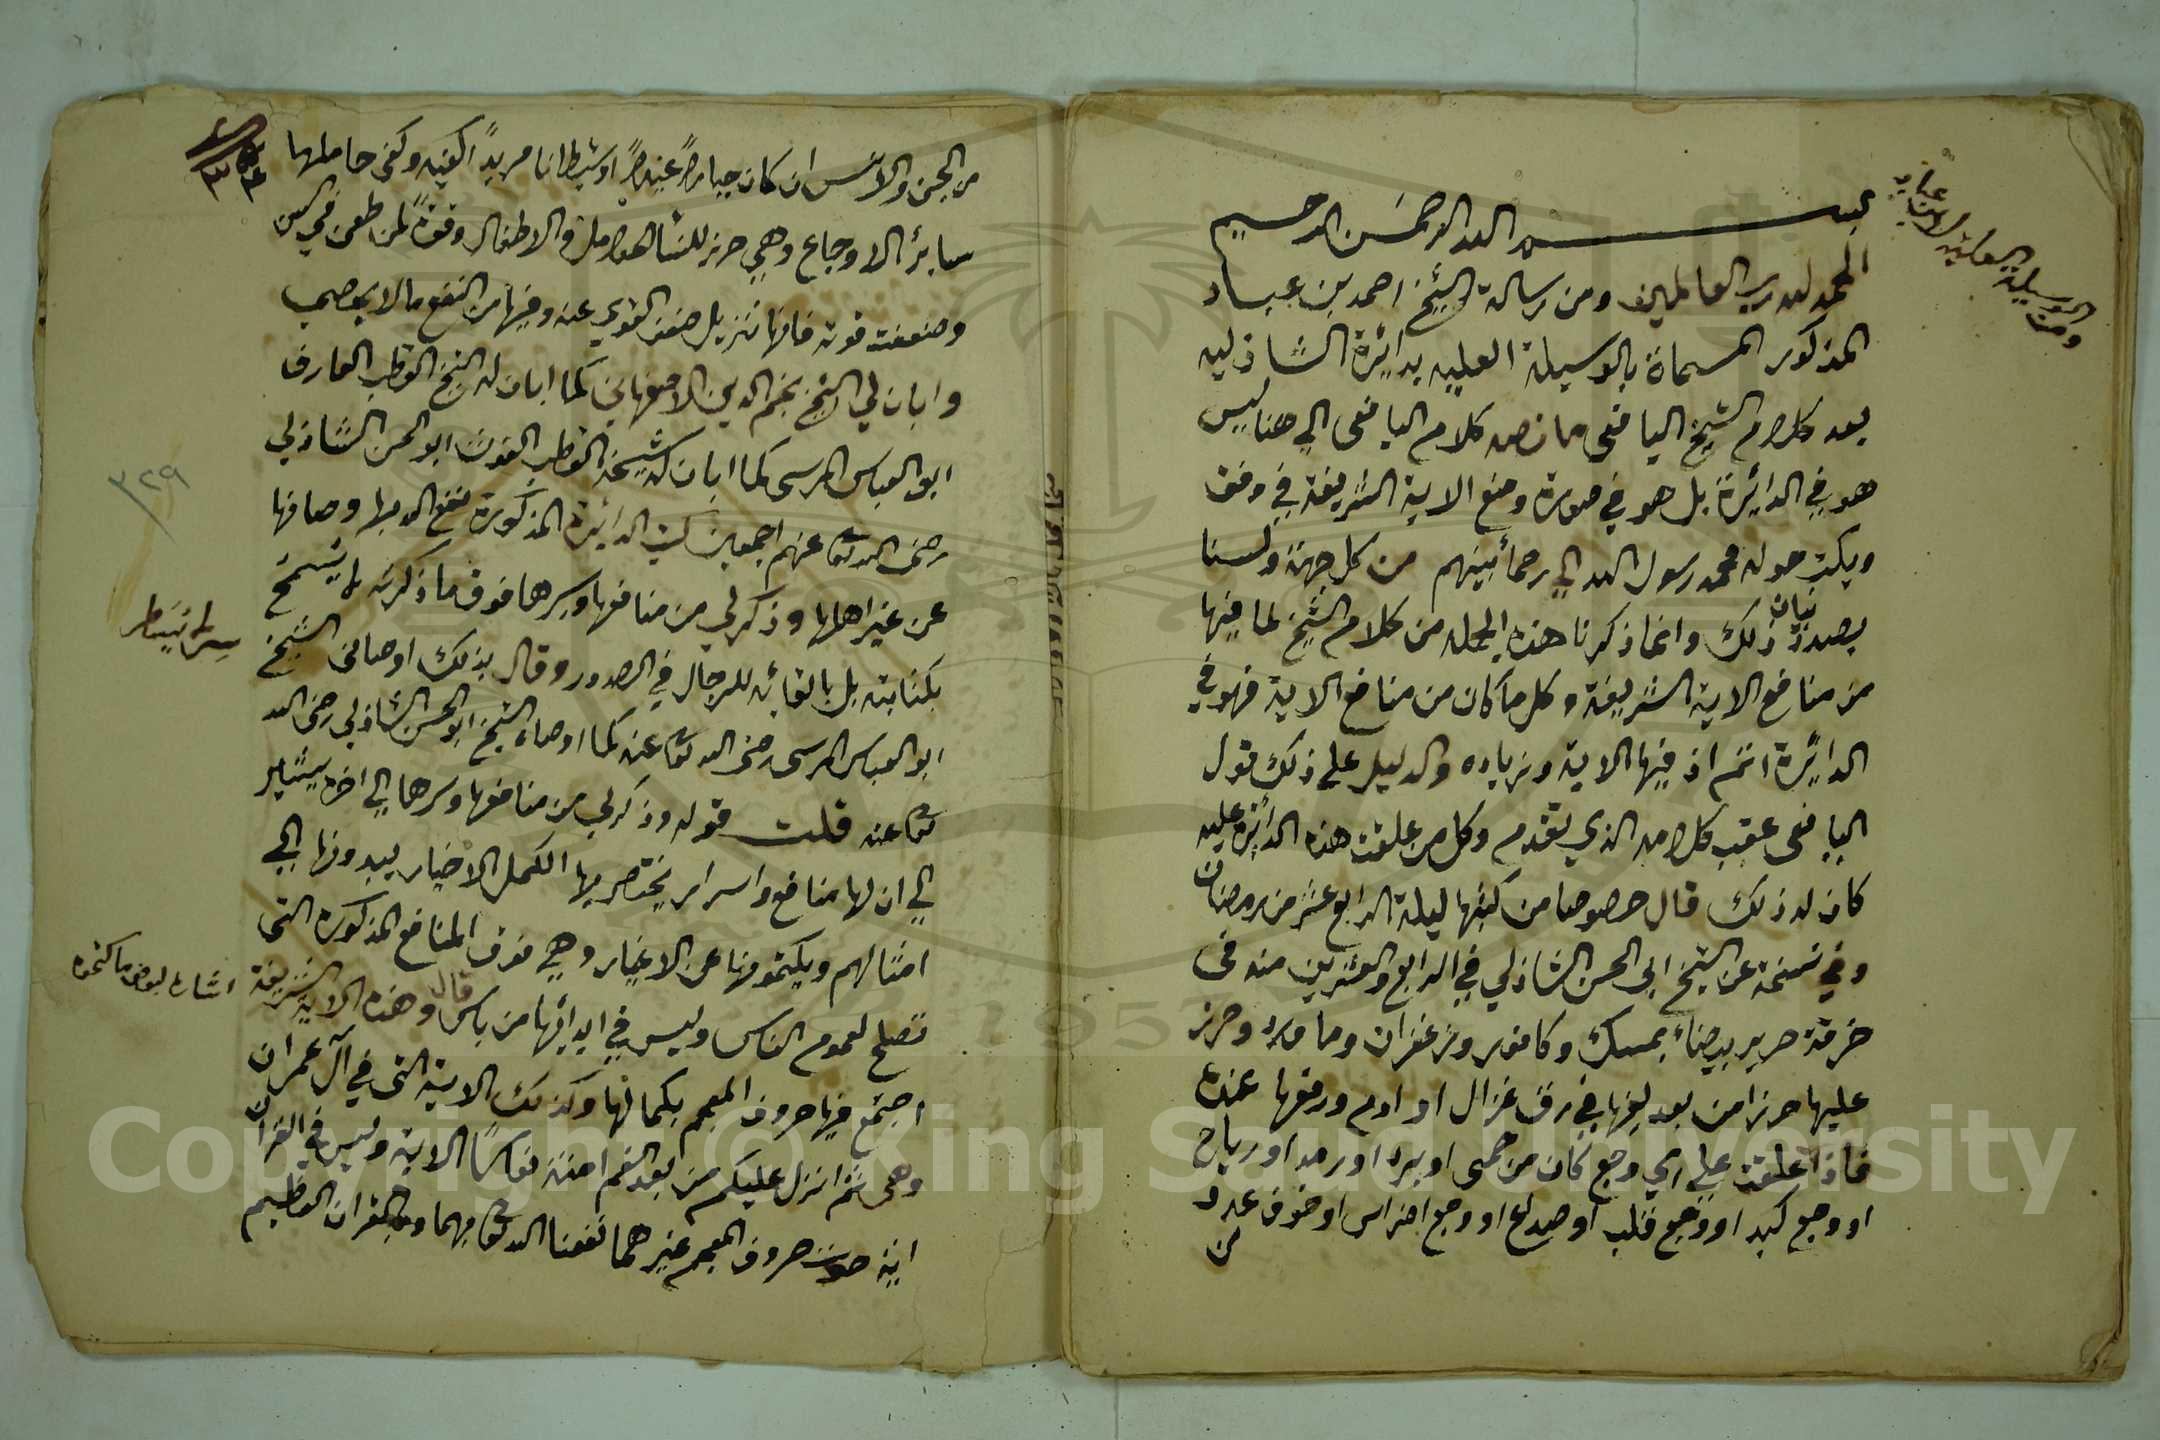 بسم الله الرحمن الرحيم
الحمد لله رب العالمين ومن رسالة الشيخ احمد بن عباد
المذكور المسماة بالوسيلة العليه بدائرة الشاذليه
بعد كلام الشيخ اليافعى ما نصه كلام اليافعى الي هنا ليس
هو في الدائرة بل هو في صورة وضع الاية الشريفة في وفق
ويكتب حوله محمد رسول الله الي رحمأ بينهم من كل جهة ولسنا
بصدد بيان ذلك وانما ذكرنا هذه الجمله من كلام الشيخ لما فيها
من منافع الاية الشريفة وكل ما كان من منافع الاية فهو في
الدائرة اتم اذ فيها الاية وزياده والدليل علي ذلك قول
اليافعى عقب كلامه الذي تقدم وكل من علقت هذه الدائرة عليه
كان له ذلك قال خصوصا من كتبها ليلة الرابع عشر من رمضان
وفي نسخة عن الشيخ ابى الحسن الشاذلي في الرابع والعشرين منه فى
خرقة حرير بيضاء بمسك وكافور وزعفران وما ورد وحرز
عليها حرزا من بعد لفها في رق غزال او ادم ورفعها عنده
فاذا علقت علي اي وجع كان من حمى او برد او رمد او رياح
او وجع كبد او وجع قلب او صداع او وجع اضراس او خوف عدو
من
ومن الوسيلة العلية لابن عباد
من الجن والانس ان كان جبارا عنيدا او شيطانا مريدا اكفيه وكفى حاملها
سائر الاوجاع وهي حرز للنسا الحوامل والاطفال وقوة لمن طعن في السن
وضعفت قوته فانها تزيل ضعف القوي عنه وفيها من النفع ما لا يحصى
وابان لي الشيخ نجم الدين الاصفهاني كما ابان له الشيخ القطب العارف
ابو العباس المرسى كما ابان له شيخه القطب الغوث ابو الحسن الشاذلي
رضى الله تعا عنهم اجمعين كتب الدائرة المذكورة نفع الله بها وصانها
عن غير اهلها وذكر لي من منافعها وسرها فوق ما ذكرته لم يسمح
بكتابته بل بالقائه للرجال في الصدور وقال بذلك اوصانى الشيخ
ابو العباس المرسى رضى الله تعا عنه كما اوصاه الشيخ ابو الحسن الشاذلي رضى الله
تعا عنه قلت قوله وذكر لي من منافعها وسرها الي اخره يشير
الي ان لها منافع واسرار يختص بها الكمل الاخيار يبدونها الي
امثالهم ويكتمونها عن الاغيار وهي فوق المنافع المذكورة التى
تصلح لعموم الناس وليس في ابدائها من باس قال وهذه الاية الشريفة
اجتمع فيها حروف المعجم بكمالها وكذلك الاية التى في آل عمران
وهى ثم انزل عليكم من بعد الغم امنة نعاسا الاية وليس في القران
اية حوت حروف المعجم غيرهما نفعنا الله تعا بهما وبالقران العظيم
٣٢٩
اشارة لبعض ما كتموه
Copyright © King Saud University
1957